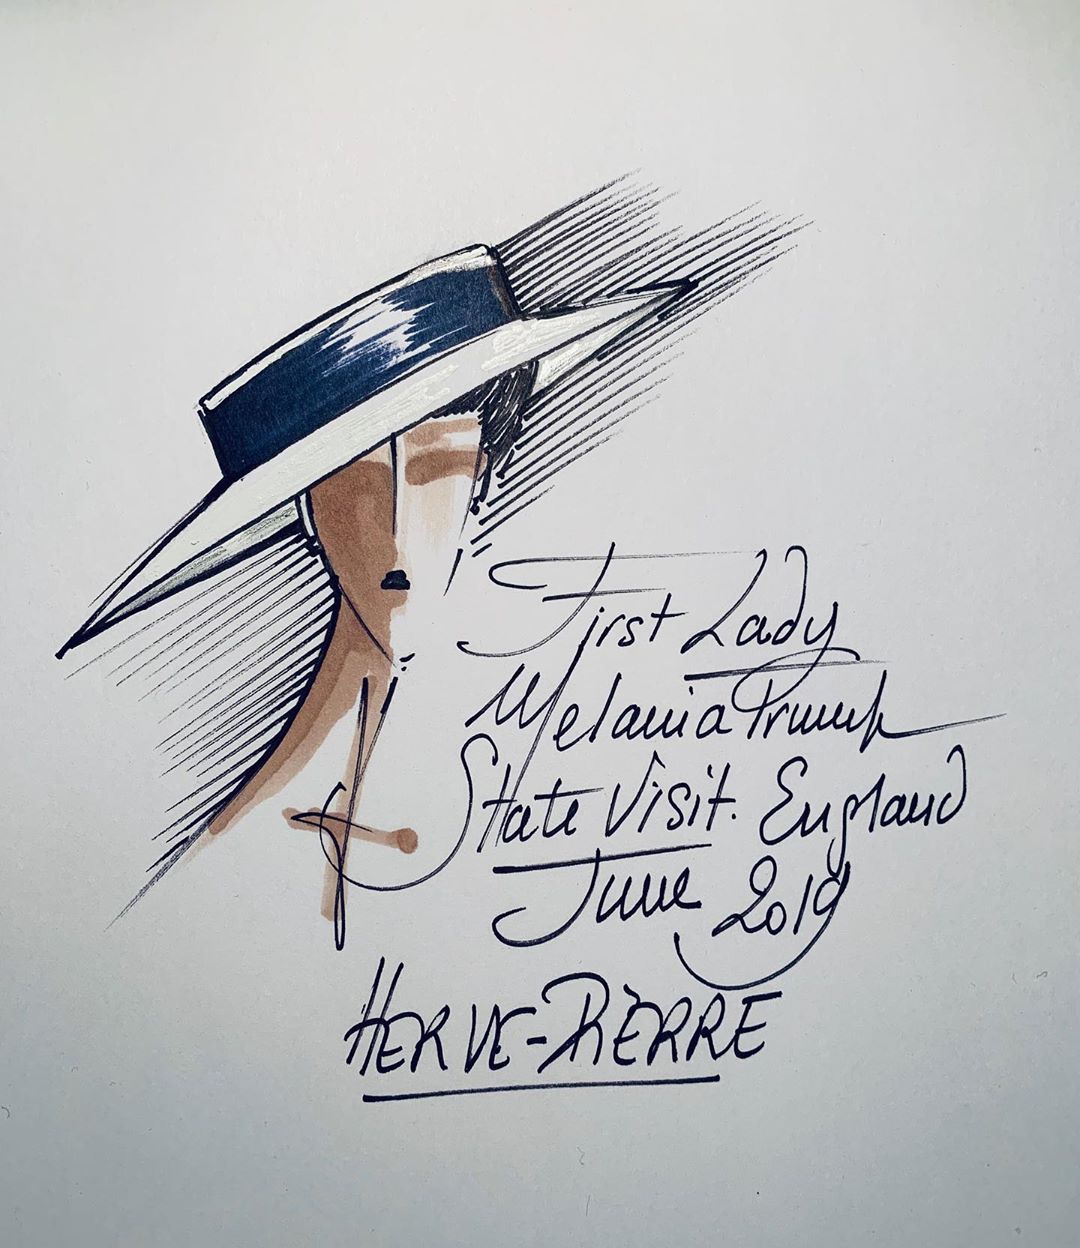 First Lady
Melania Trump
State Visit. England
June 2019
HERVE-PIERRE